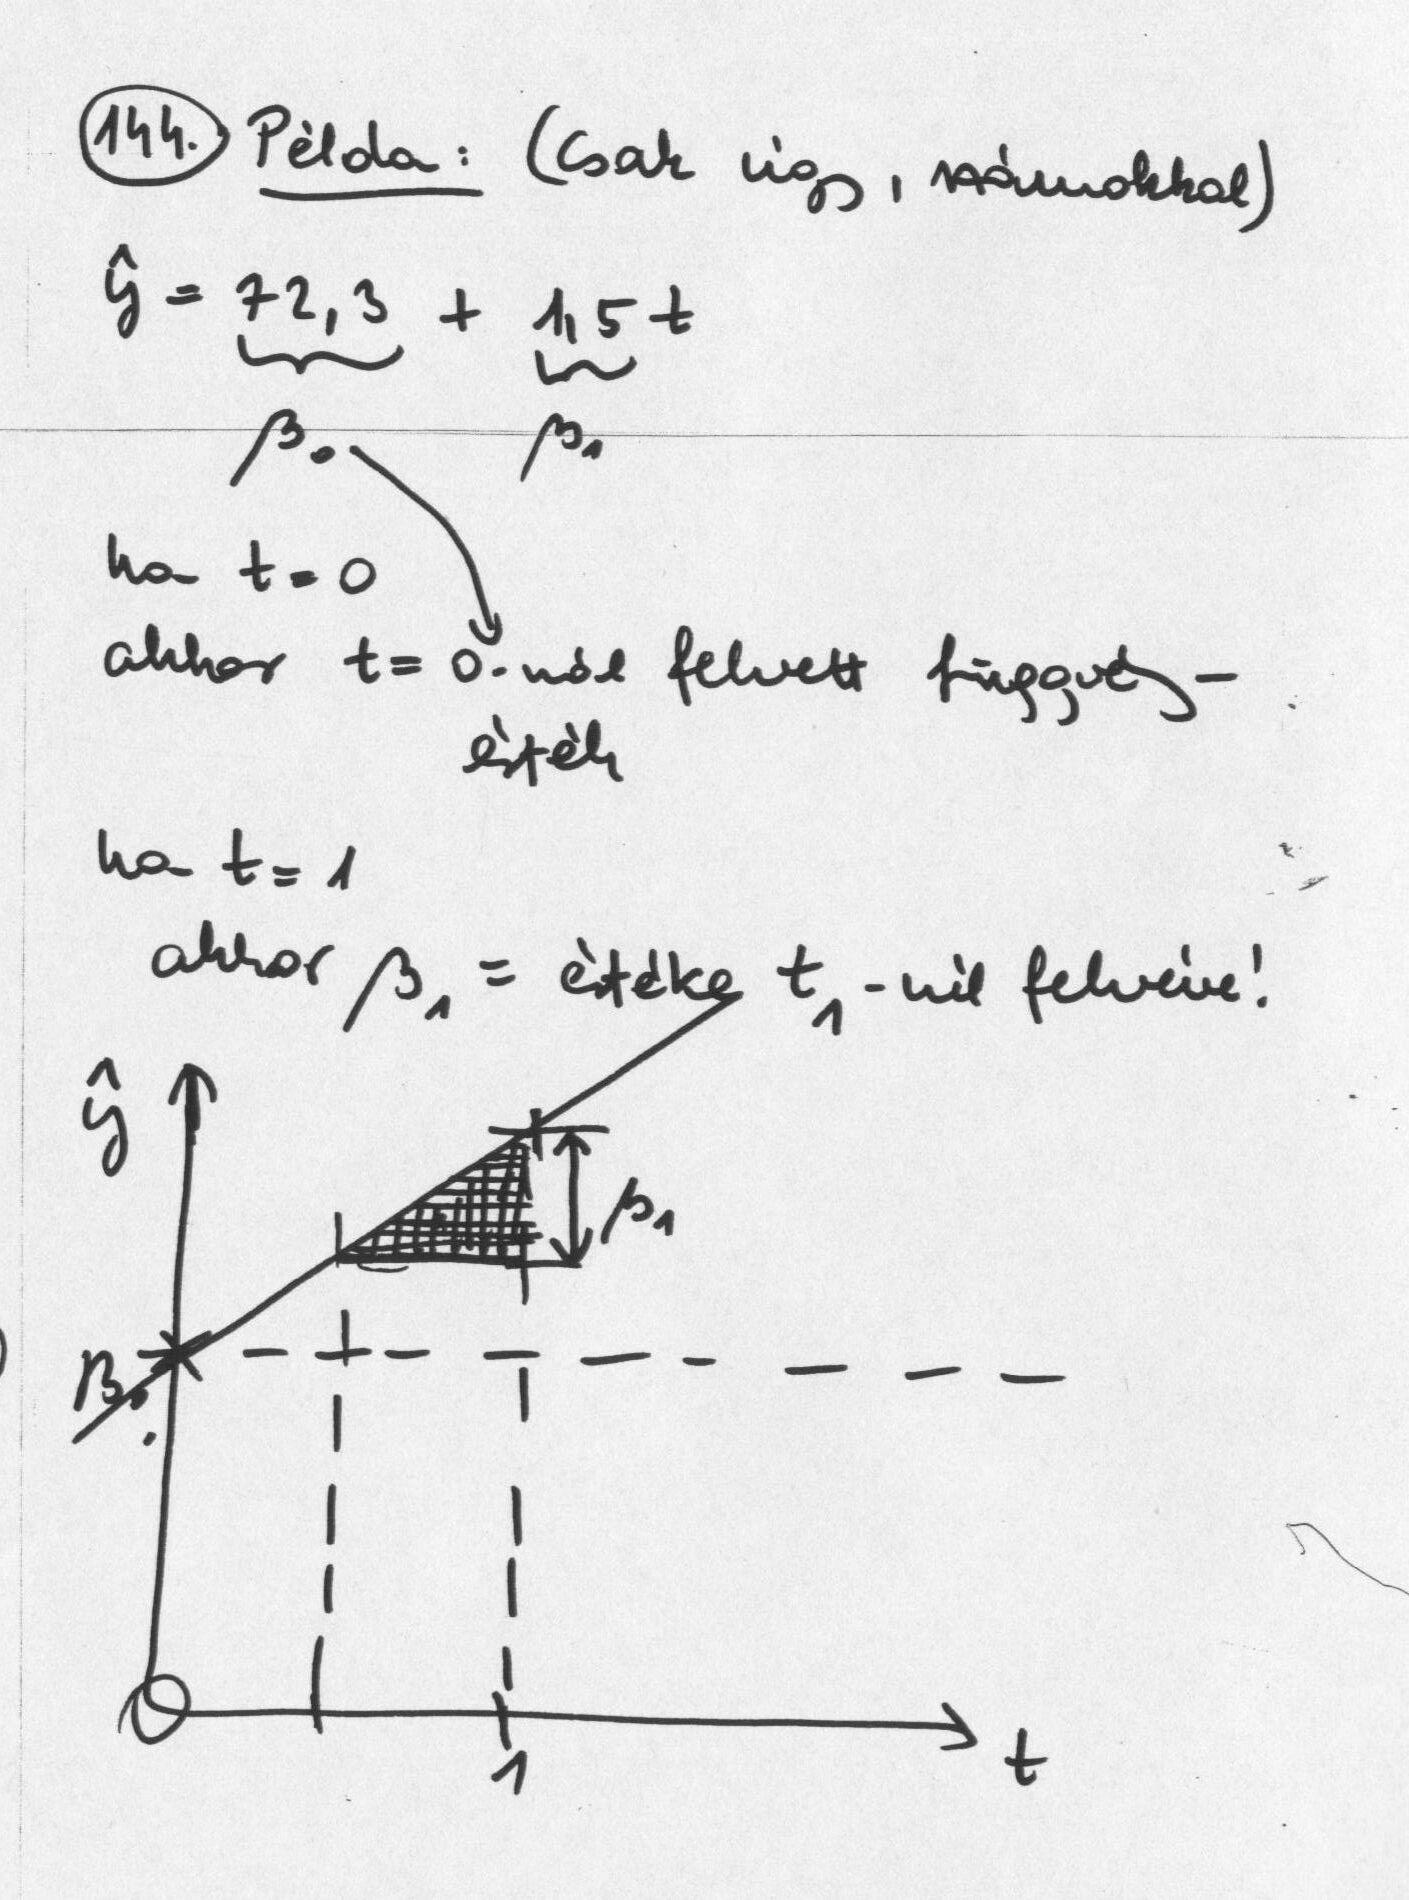 144. Példa: (Csak úgy, számokkal)
ŷ = 72,3 + 1,5 t
β₀ β₁
ha t = 0
akkor t = 0-nál felvett függvény-
érték
ha t = 1
akkor β₁ = értéke t₁-nél felvéve!
ŷ
β₁
β₀
1
t